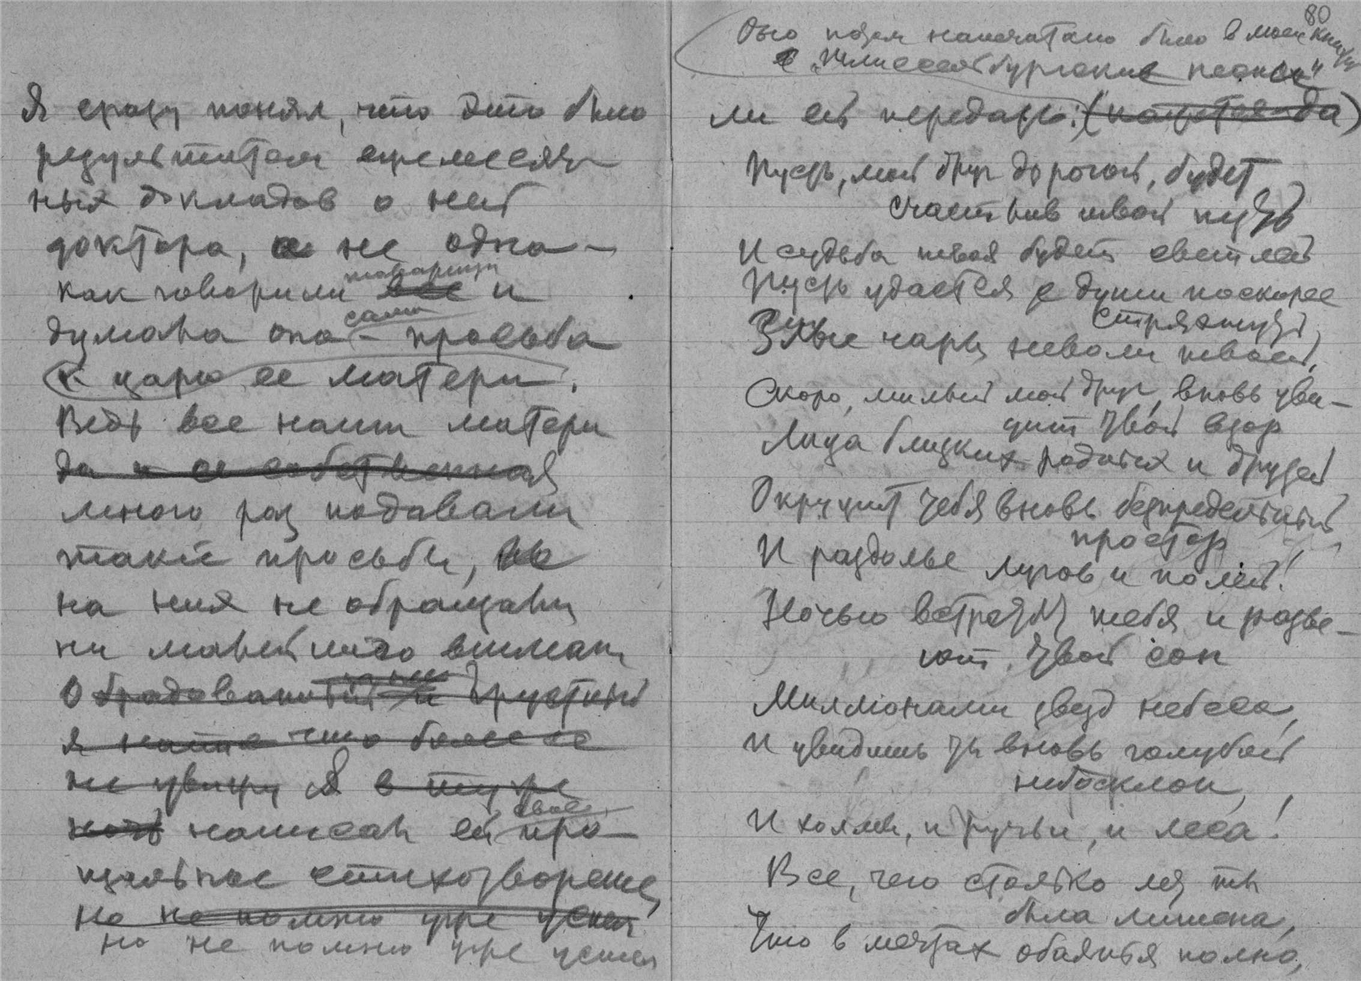 Я сразу понял, что это было
результатом ежемесяч-
ных докладов о ней
доктора, а не одна-
как говорили товарищи все и
думала она сама - просьба
к царю ее матери.
Ведь все наши матери
да и ее собственная
много раз подавали
такие просьбы, но
на них не обращали
ни малейшаго вниман
Обрадованный и грустный
я
не увижу я в ту же
ночь написал ей свое про-
щальное стихотворение,
но не помню уже успел
но не помню уже успел
80
Оно позже напечатано было в моей книге
"Шлиссельбургские песни"
ли ей передать: (кажется да)
Пусть, мой друг дорогой, будет
счастлив твой путь
И судьба твоя будет светлей
Пусть удастся с души поскорее
стряхнуть
Злые чары неволи твоей,
Скоро, милый мой друг, вновь уви-
дит твой взор
Лица близких родных и друзей
Окружит тебя вновь безпредельный
простор
И раздолье лугов и полей!
Ночью встретят тебя и разве-
ют твой сон
Миллионами звезд небеса,
И увидишь ты вновь голубой
небосклон,
И холмы, и ручьи, и леса!
Все, чего столько лет ты
была лишена,
Что в мечтах обаянья полно,